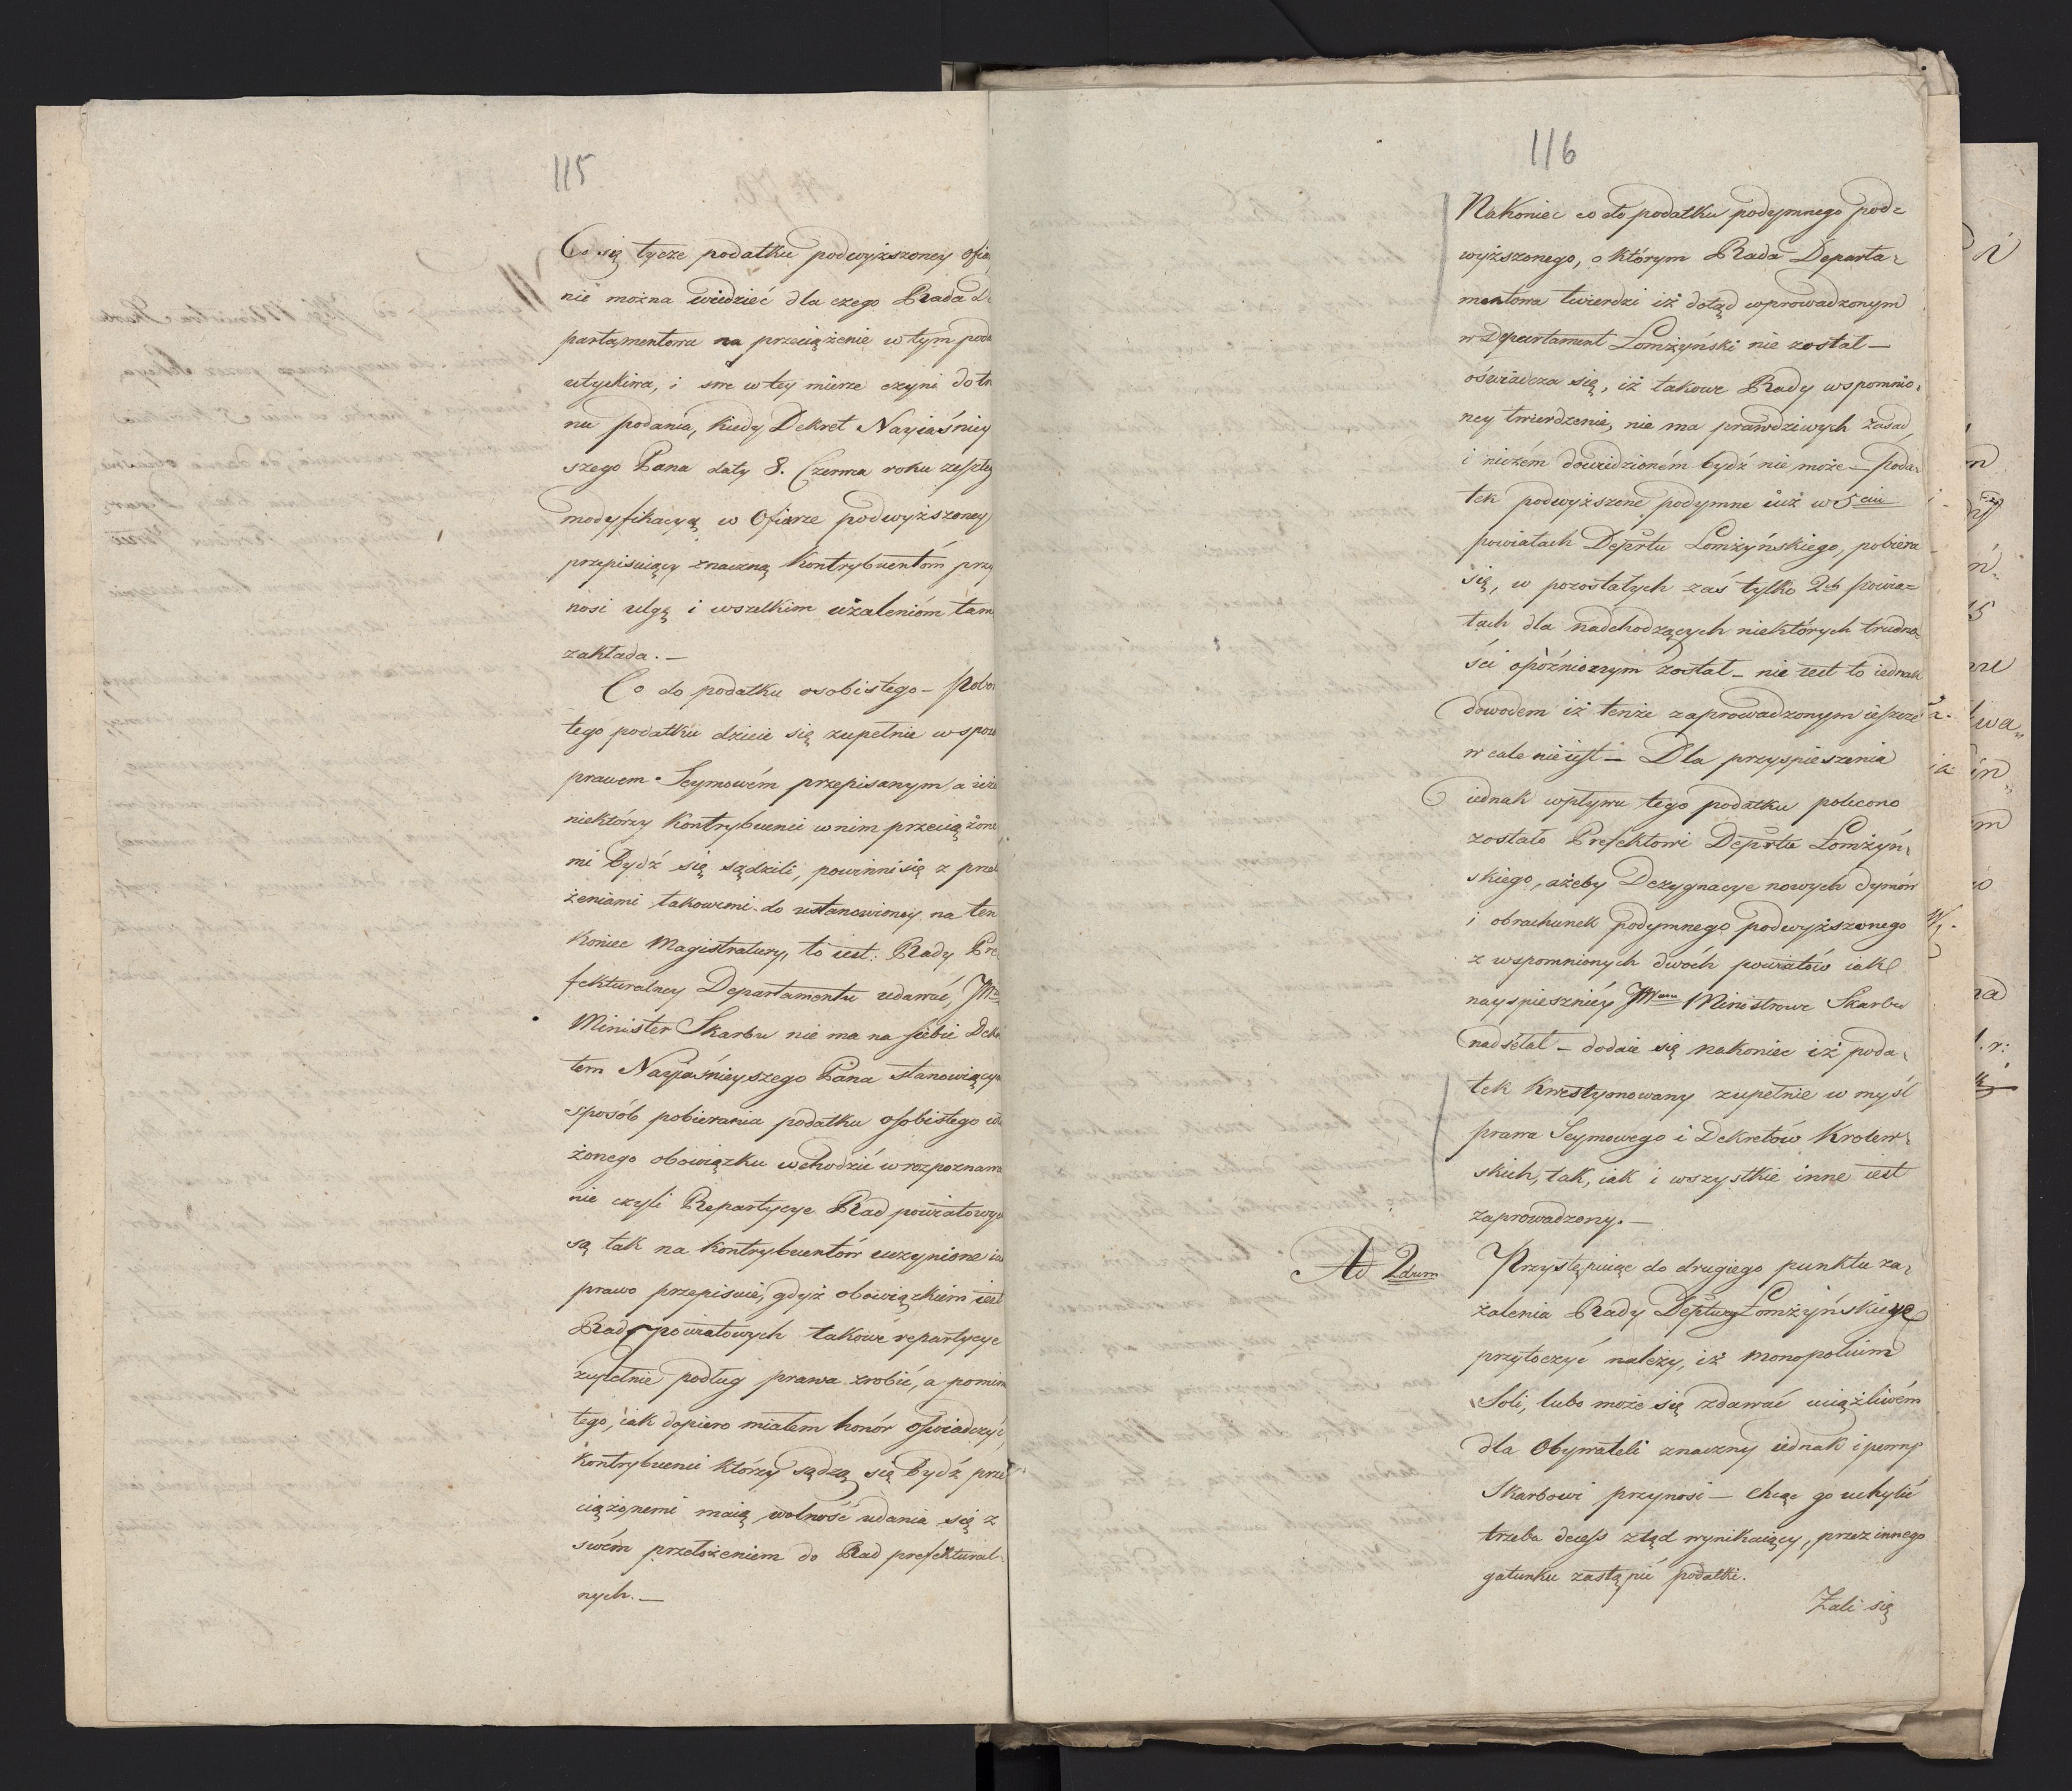 115
Co się tycze podatku podwyższoney ofia
nie można wiedzieć dla czego Rada De
partamentowa na przeciążenie w tym poda
utyskiwa, i swe w tey mierze czyni do tr
nu podania, kiedy Dekret Nayiaśniey
szego Pana daty 8. Czerwca roku zeszłeg
modyfikacyą w Ofierze podwyższoney
przepisuiący znaczną Kontrybuentom przy
nosi ulgę i wszelkim użaleniom tam
zakłada. —
Co do podatku osobistego — Pobo
tego podatku dzieie się zupełnie w spos
prawem Seymowém przepisanym, a ieże
niektórzy Kontrybuenci w nim przeciążone
mi bydź się sądzili, powinni się z przeł
żeniami takowemi do ustanowioney na ten
koniec Magistratury, to iest: Rady Pre
fekturalney Departamentu udawać, JW
Minister Skarbu nie ma na siebie Dekre
tem Nayiaśnieyszego Pana stanowiącym
sposób pobierania podatku osobistego wło
żonego obowiązku wchodzić w rozpoznawa
nie czyli Repartycye Rad powiatowych
są tak na kontrybuentów uczynione ia
prawo przepisuie, gdyż obowiązkiem iest
Rad powiatowych takowe repartycye
zupełnie podług prawa zrobić, a pomimo
tego, iak dopiero miałem honór oświadczyć,
Kontrybuenci którzy sądzą się bydź prze
ciążonemi maią wolność udania się z
swém przełożeniem do Rad prefektural-
nych. —
116
Nakoniec co do podatku podymnego pod-
wyższonego, o którym Rada Departa-
mentowa twierdzi iż dotąd wprowadzonym
w Departament Łomżyński nie został —
oświadcza się, iż takowe Rady wspomnio-
ney twierdzenie, nie ma prawdziwych zasad,
i niczém dowiedzioném bydź nie może — poda-
tek podwyższone podymne iuż w 5ciu
powiatach Deprtu Łomżyńskiego, pobiera
się, w pozostałych zaś tylko 2ch powia-
tach dla nadchodzących niektórych trudno-
ści opóźnionym został — nie iest to iednak
dowodem iż tenże zaprowadzonym ieszcze
w cale nie iest — Dla przyspieszenia
iednak wpływu tego podatku polecono
zostało Prefektowi Deprtu Łomżyń-
skiego, ażeby Dezygnacye nowych dymów
i obrachunek podymnego podwyższonego
z wspomnionych dwóch powiatów iak
nayspieszniéy JWmu Ministrowi Skarbu
nadsełał — dodaie się nakoniec iż poda-
tek kwestyonowany zupełnie w myśl
prawa Seymowego i Dekretów Krolew-
skich, tak, iak i wszystkie inne iest
zaprowadzony. —
Ad 2dum
Przystępuiąc do drugiego punktu za-
żalenia Rady Deptwey Łomżyńskiey
przytoczyć należy, iż monopolium
Soli, lubo może się zdawać uciążliwém
dla Obywateli znaczny iednak i pewny
Skarbowi przynosi — chcąc go uchylić
trzeba decess ztąd wynikaiący, przez innego
gatunku zastąpić podatki.
Żali się